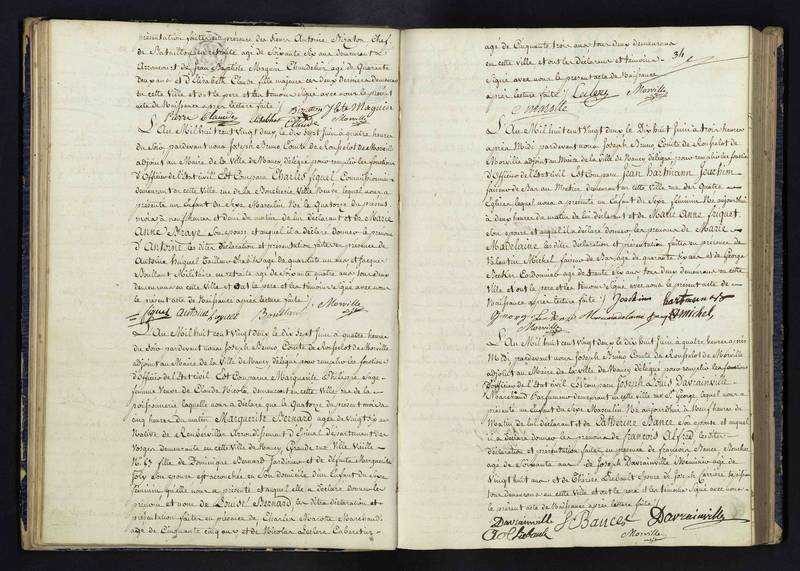 présentation faites en présence des sieurs Antoine Bizaton Chef
de Bataillon en retraite agé de Soixante six ans demeurant
et Jean Baptiste Maguin agé de quarante
deux ans et d'Elizabeth Claude fille majeure ces deux derniers demeurant
en cette Ville et ont le pere et les témoins signé avec nous le présent
acte de Naissance après lecture faite /.
Pierre Claude Elisabet Claude Bizaton J Bte Maguin
Morville
L'An Mil huit cent vingt deux, le dix sept Juin à quatre heures
du Soir pardevant nous Joseph Bruno Comte de Rouyselot de Morville
adjoint au Maire de la Ville de Nancy délégué pour remplir les fonctions
d'Officier de l'Etat civil Est Comparu Charles Fiquel Commissionnaire
demeurant en cette Ville rue de la Boucherie Ville Neuve lequel nous a
présenté un Enfant du Sexe Masculin Né le Quatorze du présent
mois à neuf heures et demi du matin de lui déclarant et de Marie
Anne Son épouse et auquel il a déclaré donner le prénom
d'Antoine les dites déclaration et présentation faites en présence de
Antoine Huguet Tailleur d'habits agé de quarante un ans et Jacques
Boulland Militaire en retraite agé de Soixante quatre ans tous deux
demeurans en cette Ville et ont le pere et les témoins Signé avec nous
le présent acte de Naissance après lecture faite /.
Morville
L'An Mil huit cent vingt deux le dix sept Juin à quatre heures
du Soir pardevant nous Joseph Bruno Comte de Rouyselot de Morville
adjoint au Maire de la Ville de Nancy délégué pour remplir les fonctions
d'Officier de l'Etat civil Est Comparue Marguerite Philippe Sage
femme Veuve de Claude Nicolas demeurant en cette Ville rue de la
poissonnerie laquelle nous a déclaré que le Quatorze du présent mois à
cinq heures du matin Marguerite Bernard agée de vingt six ans
Native de Rambervillers Arrondissement d'Epinal Département des
Vosges demeurante en cette Ville de Nancy Grande rue Ville Vieille
No. 67 fille de Dominique Bernard Jardinier et de défunte Marguerite
Joly Son épouse est accouchée en Son domicile d'un Enfant du Sexe
Féminin qu'elle nous a présenté et auquel elle a déclaré donner les
prénom et nom de Louise Bernard les dites déclaration et
présentation faites en présence de Charles Marchand
agé de Cinquante cinq ans et de Nicolas Leclerc Cabaretier
agé de Cinquante trois ans tous deux demeurans
34
en cette Ville et ont les déclarans et témoins
Signé avec nous le présent acte de Naissance
après lecture faite /. Leclerc Morville
L'An Mil huit cent Vingt deux le Dix huit Juin à trois heures
après Midi pardevant nous Joseph Bruno Comte de Rouyselot de
Morville adjoint au Maire de la ville de Nancy délégué pour remplir les fonctions
d'Officier de l'Etat civil Est Comparu Jean Hartmann Joachim
faiseur de Bas au Métier demeurant en cette Ville rue des Quatre
Eglises lequel nous a présenté un Enfant du Sexe féminin Né aujourd'hui
à deux heures du matin de lui déclarant et de Marie Anne Friquet
Son épouse et auquel il a déclaré donner les prénoms de Marie
Madelaine les dites déclaration et présentation faites en présence de
Valentin Michel faiseur de Bas agé de quarante six ans et de George
Becker Cordonnier agé de trente six ans tous deux demeurans en cette
Ville et ont le pere et les témoins Signé avec nous le présent acte de
Naissance après lecture faite /. Joachim hartmann
michel
Morville
L'An Mil huit cent vingt deux le dix huit Juin à quatre heures après
Midi pardevant nous Joseph Bruno Comte de Rouyselot de Morville
adjoint au Maire de la Ville de Nancy délégué pour remplir les fonctions
d'Officier de l'Etat civil Est comparu Joseph Louis Davrainville
Marchand Parfumeur demeurant en cette ville rue St George lequel nous a
présenté un Enfant du Sexe Masculin Né aujourd'hui à Neuf heures du
Matin de lui déclarant et de Catherine Bance Son épouse et auquel
il a déclaré donner les prénoms de François Alfred les dites
déclaration et présentation faites en présence de François Bance
agé de Soixante ans de Joseph Davrainville agé de
Vingt huit ans et de Thérèse Liebault épouse de Joseph
tous demeurans en cette Ville et ont le pere et les témoins Signé avec nous
le présent acte de Naissance après lecture faite /.
Davrainville F Bances Davrainville
Liebault Morville